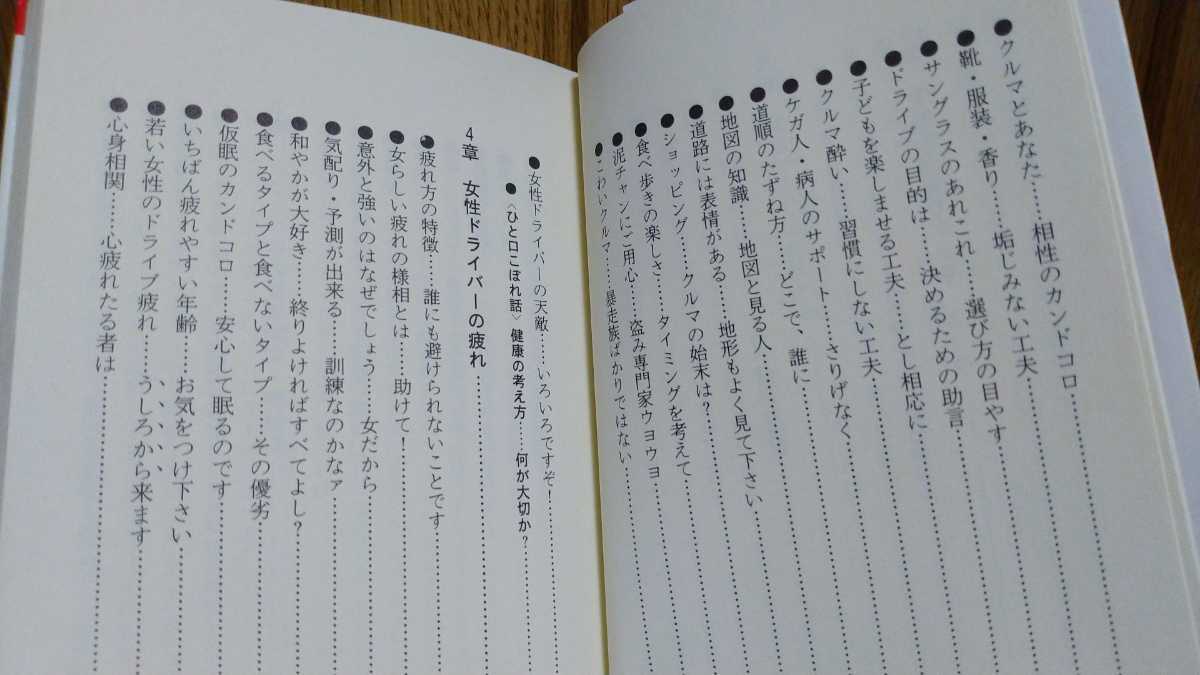 ●クルマとあなた……相性のカンドコロ……
●靴・服装・香り……垢じみない工夫……
●サングラスのあれこれ……選び方の目やす……
●ドライブの目的は……決めるための助言……
●子どもを楽しませる工夫……とし相応に……
●クルマ酔い……習慣にしない工夫……
●ケガ人・病人のサポート……さりげなく……
●道順のたずね方……どこで、誰に……
●地図の知識……地図と見る人……
●道路には表情がある……地形もよく見て下さい……
●ショッピング……クルマの始末は?……
●食べ歩きの楽しさ……タイミングを考えて……
●泥チャンにご用心……盗み専門家ウヨウヨ……
●こわいクルマ……暴走族ばかりではない……
●女性ドライバーの天敵……いろいろですぞ!……
●〈ひと口こぼれ話〉健康の考え方……何が大切か?……
4章 女性ドライバーの疲れ……
●疲れ方の特徴……誰にも避けられないことです……
●女らしい疲れの様相とは……助けて!……
●意外と強いのはなぜでしょう……女だから……
●気配り・予測が出来る……訓練なのかなァ……
●和やかが大好き……終りよければすべてよし?……
●食べるタイプと食べないタイプ……その優劣……
●仮眠のカンドコロ……安心して眠るのです……
●いちばん疲れやすい年齢……お気をつけ下さい……
●若い女性のドライブ疲れ……うしろから来ます……
●心身相関……心疲れたる者は……